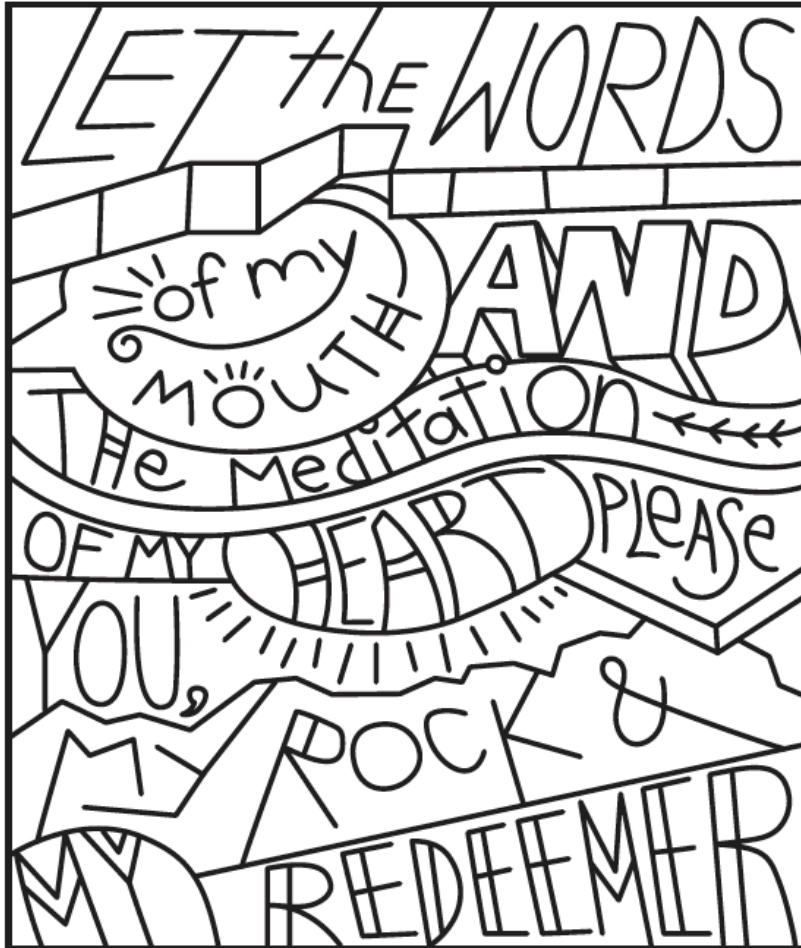 LET thE WORDS
of my
MOUTH
AND
THe MeditatiOn
OF MY HEART PLeASe
YOU,
MY ROCK &
MY REDEEMER